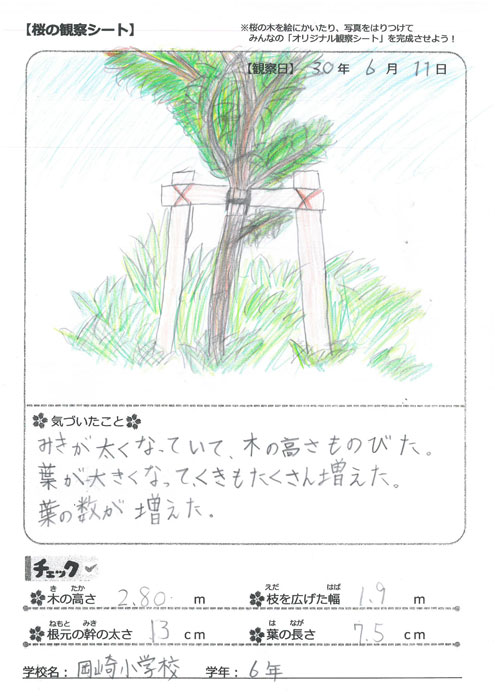 【桜の観察シート】
※桜の木を絵にかいたり、写真をはりつけて
みんなの「オリジナル観察シート」を完成させよう！
【観察日】 30年 6月 11日
気づいたこと
みきが太くなっていて、木の高さものびた。
葉が大きくなってくきもたくさん増えた。
葉の数が増えた。
チェック
木の高さ 2.80 m
きたか
枝を広げた幅 1.9 m
えだ はば
根元の幹の太さ 13 cm
ねもと みき
葉の長さ 7.5 cm
は なが
学校名：岡崎小学校 学年：6年